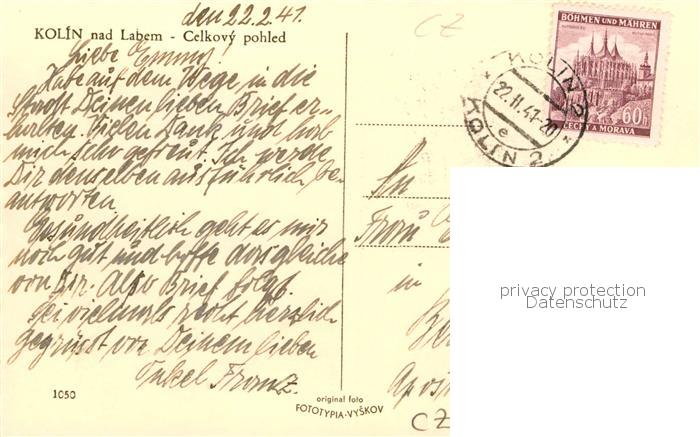 den 22.2.41.
KOLÍN nad Labem - Celkový pohled
Liebe Emmy!
Habe auf dem Wege in die
Stadt Deinen lieben Brief er-
halten. Vielen Dank und hab
mich sehr gefreut. Ich werde
Dir denselben ausführlich be-
antworten.
Gesundheitlich geht es mir
noch gut und hoffe dasgleiche
von Dir. Also Brief folgt
Sei vielmals recht herzlich
gegrüsst von Deinem lieben
Onkel Franz.
1050
original foto
FOTOTYPIA-VYŠKOV
CZ
BÖHMEN UND MÄHREN
60h
ČECHY A MORAVA
KOLÍN 2
22.II.41-20
e
KOLIN 2
An
Frau
in
privacy protection
Datenschutz
CZ